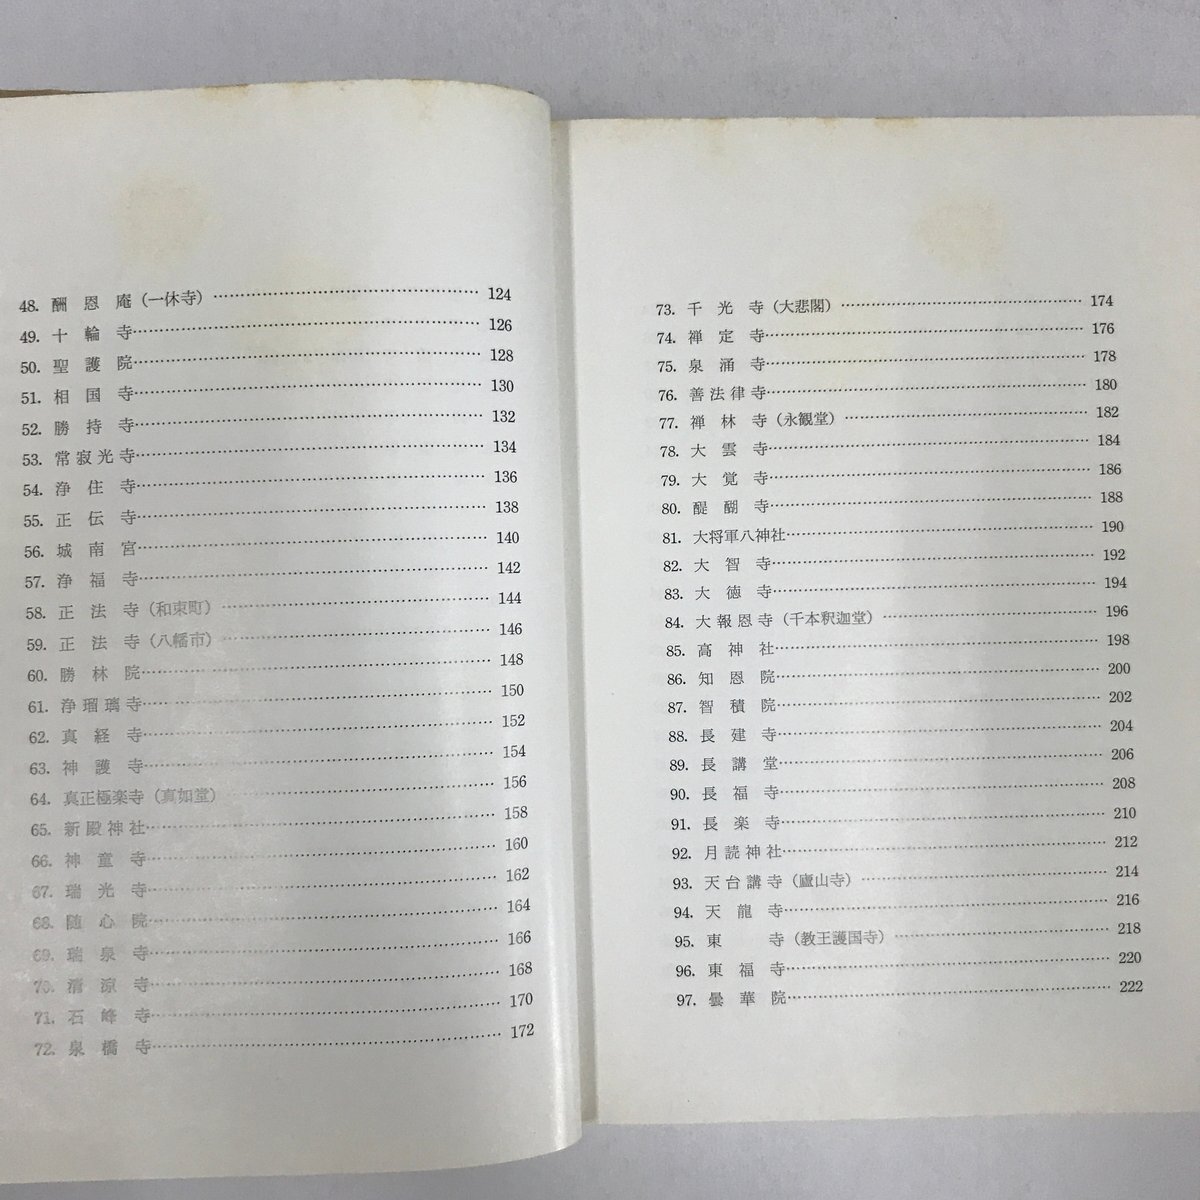 48. 酬恩庵（一休寺）…… 124
49. 十輪寺…… 126
50. 聖護院…… 128
51. 相国寺…… 130
52. 勝持寺…… 132
53. 常寂光寺…… 134
54. 浄住寺…… 136
55. 正伝寺…… 138
56. 城南宮…… 140
57. 浄福寺…… 142
58. 正法寺（和束町）…… 144
59. 正法寺（八幡市）…… 146
60. 勝林院…… 148
61. 浄瑠璃寺…… 150
62. 真経寺…… 152
63. 神護寺…… 154
64. 真正極楽寺（真如堂）…… 156
65. 新殿神社…… 158
66. 神童寺…… 160
67. 瑞光寺…… 162
68. 随心院…… 164
69. 瑞泉寺…… 166
70. 清涼寺…… 168
71. 石峰寺…… 170
72. 泉橋寺…… 172
73. 千光寺（大悲閣）…… 174
74. 禅定寺…… 176
75. 泉涌寺…… 178
76. 善法律寺…… 180
77. 禅林寺（永観堂）…… 182
78. 大雲寺…… 184
79. 大覚寺…… 186
80. 醍醐寺…… 188
81. 大将軍八神社…… 190
82. 大智寺…… 192
83. 大徳寺…… 194
84. 大報恩寺（千本釈迦堂）…… 196
85. 高神社…… 198
86. 知恩院…… 200
87. 智積院…… 202
88. 長建寺…… 204
89. 長講堂…… 206
90. 長福寺…… 208
91. 長楽寺…… 210
92. 月読神社…… 212
93. 天台講寺（廬山寺）…… 214
94. 天龍寺…… 216
95. 東寺（教王護国寺）…… 218
96. 東福寺…… 220
97. 曇華院…… 222